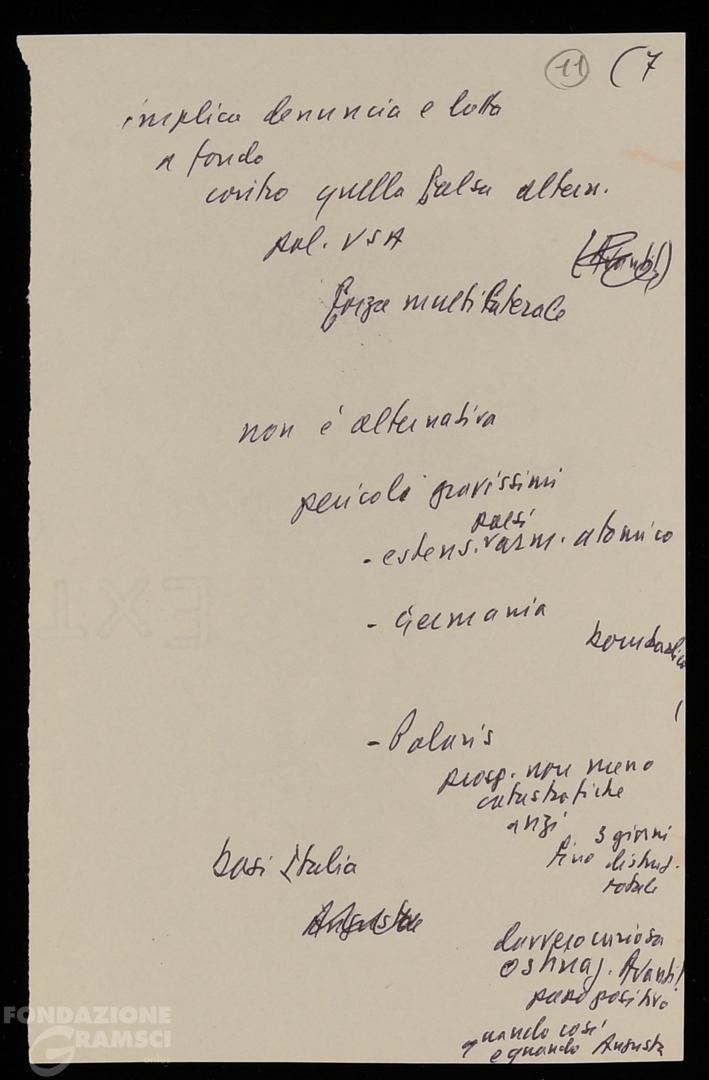 11 (7
implica denuncia e lotta
a fondo
contro quella falsa altern.
pol. USA
(Avanti!)
forza multilaterale
non è alternativa
pericoli gravissimi
paesi
- estens. arm. atomico
- Germania
- Polaris
prosp. non meno
catastrofiche
anzi
3 giorni
fino distruz.
totale
basi Italia
Augusta
davvero curiosa
ostinaz. Avanti!
passo positivo
quando così
e quando Augusta
FONDAZIONE
GRAMSCI
onlus